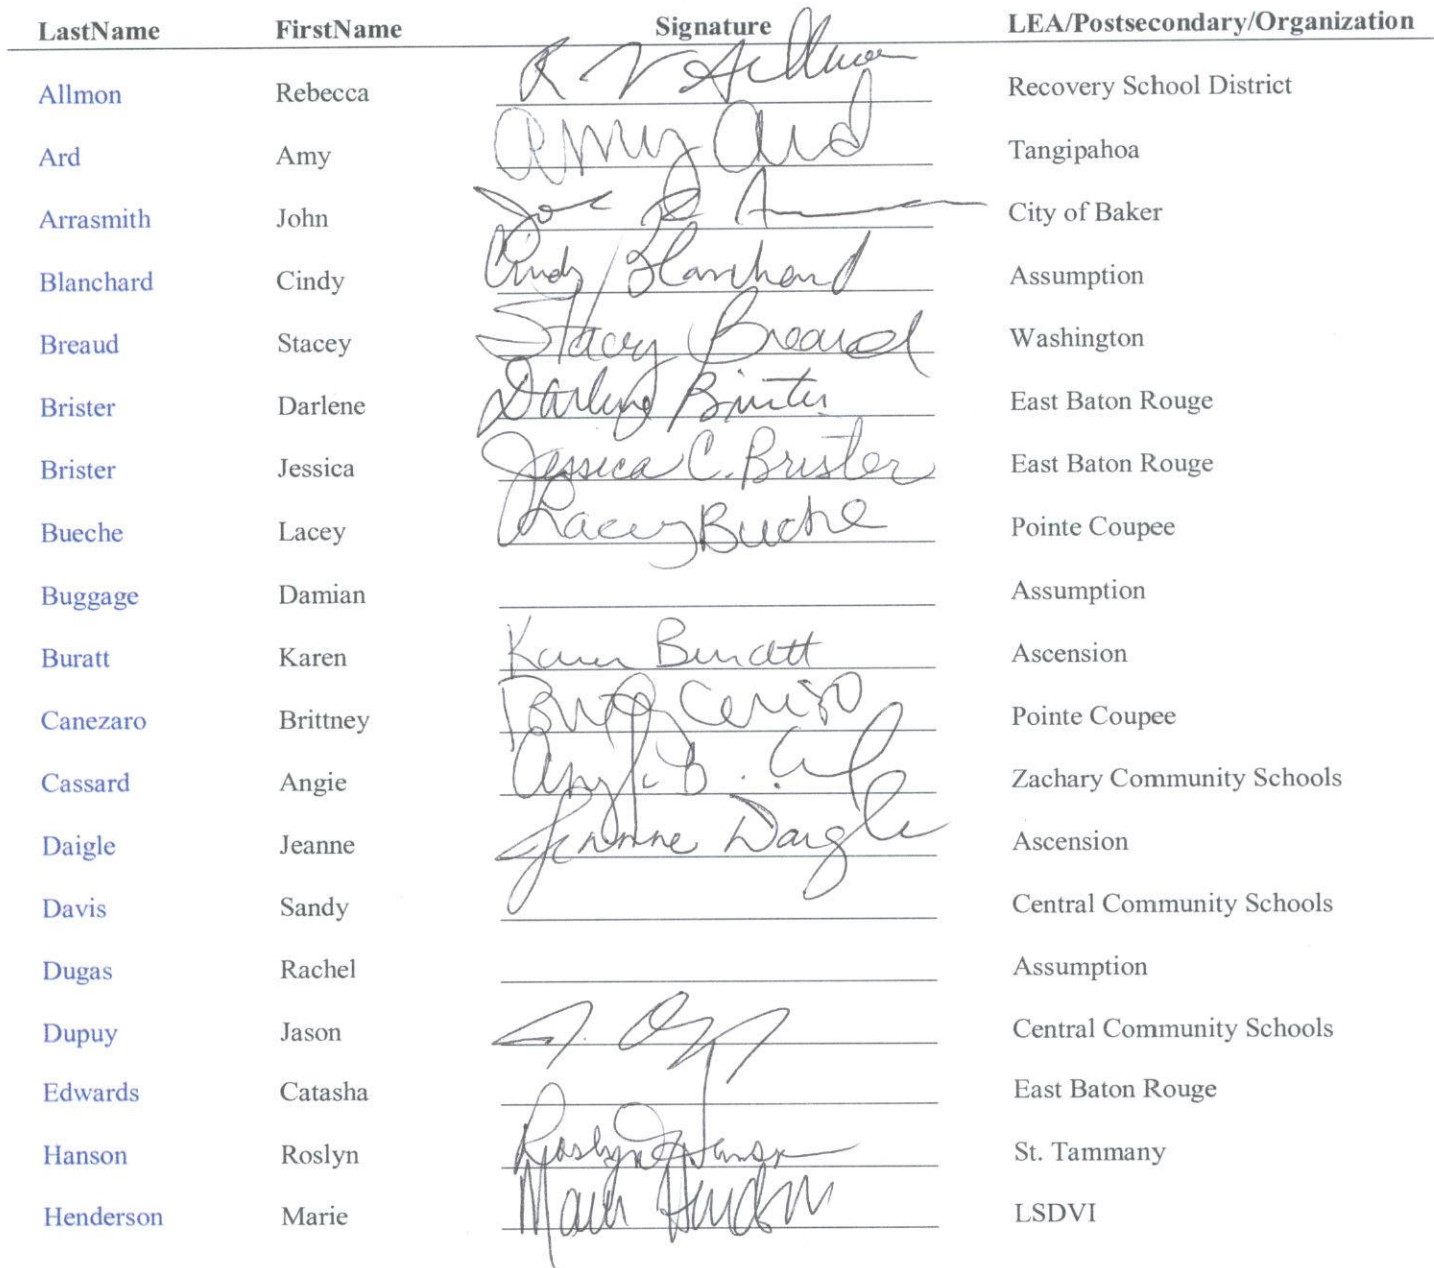 LastName FirstName Signature LEA/Postsecondary/Organization
Allmon Rebecca R V Allmon Recovery School District
Ard Amy Amy Ard Tangipahoa
Arrasmith John City of Baker
Blanchard Cindy Cindy Blanchard Assumption
Breaud Stacey Stacey Breaud Washington
Brister Darlene Darlene Brister East Baton Rouge
Brister Jessica Jessica C. Brister East Baton Rouge
Bueche Lacey Lacey Bueche Pointe Coupee
Buggage Damian Assumption
Buratt Karen Karen Buratt Ascension
Canezaro Brittney Pointe Coupee
Cassard Angie Zachary Community Schools
Daigle Jeanne Jeanne Daigle Ascension
Davis Sandy Central Community Schools
Dugas Rachel Assumption
Dupuy Jason Central Community Schools
Edwards Catasha East Baton Rouge
Hanson Roslyn Roslyn Hanson St. Tammany
Henderson Marie LSDVI